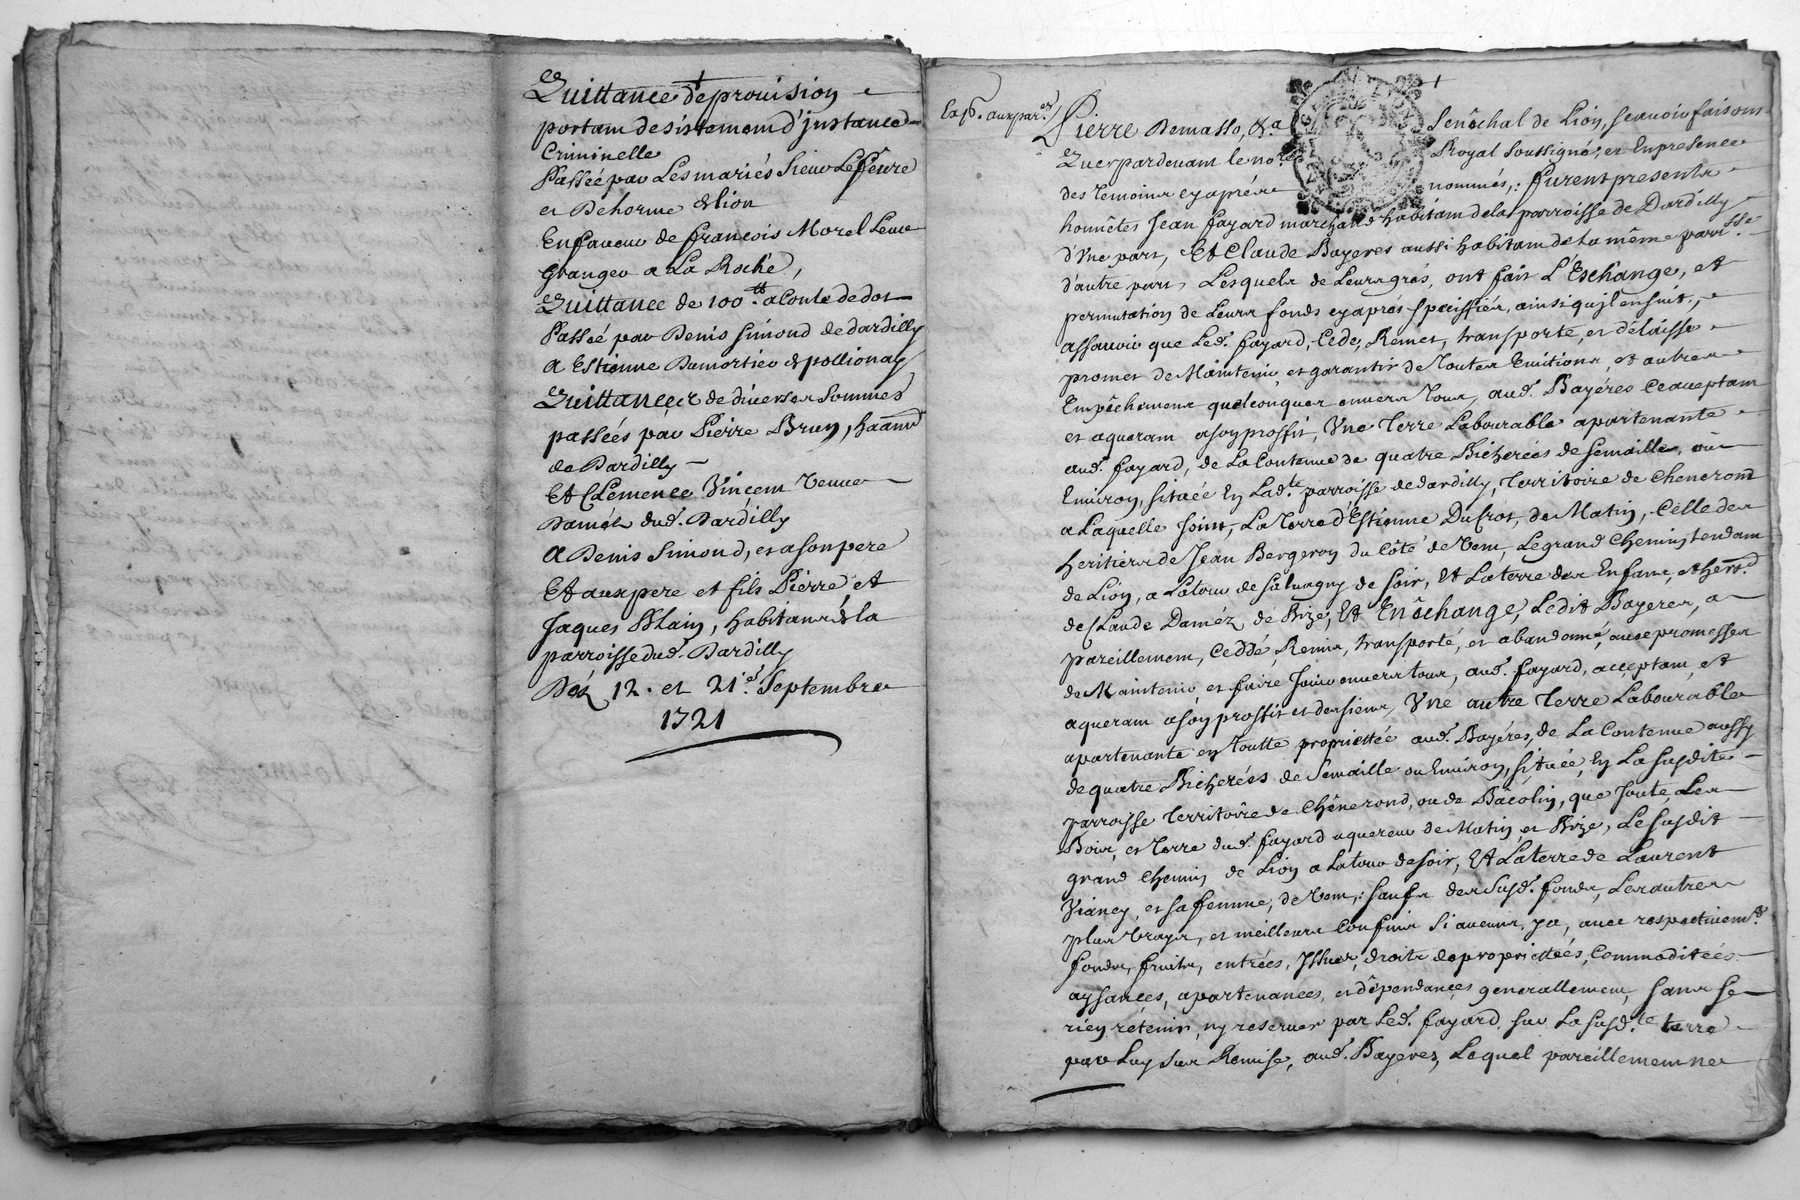 Quittance de prouision
portam desistemem d'Justance
Criminelle
Passée par Les mariés Sieur Lefeure
et Dehorme de lion
En faueur de francois Morel Leur
granger a La Roche,
Quittance de 100ᵗᵗ a Conte de dot
Passée par Denis Simond de dardilly
A Estienne Dumortier de pollionay
Quittances de diuerses Sommes
passées par Pierre Brun, haānt
de Dardilly
Et Clemence Vincem Veuue
Daméz dud. Dardilly
A Denis Simond, et a son pere
Et aux pere et fils Pierre et
Jaques Blain, habitans de la
parroisse dud. Dardilly
Déz 12. et 21.e Septembre
1721
Pierre Demasso, &a Senêchal de Lion, scauoir faisons
Que par deuant le nore Royal soussigné, et En presence
des temoins cy aprés nommés, furent presents
honnêtes Jean fayard marchand habitam de la parroisse de Dardilly
d'Une part, Et Claude Bayeres aussi habitam de la même parisse.
d'autre part, Lesquels de Leurs grés, ont fait L'Eschange, et
permutation de Leurs fonds cy aprés speciffiés, ainsi qu'jl ensuit,
assauoir que Led. fayard, Cede, Remet, transporte, et délaisse
promet de Maintenir, et garantir de toutes Euictions, et autres
Empêchemens quelconques enuers tous, aud. Bayéres ceacceptam
et aqueram a soy proffit, Une terre Labourable apartenante
aud. fayard, de La Contenue de quatre Bicherées de semaille, ou
Enuiron, située En Lad.te parroisse de dardilly, territoire de Chenerond
a Laquelle Joint, La terre d'Estienne Ducrot, de Matin, Celle des
heritiers de Jean Bergeron du Côté de Vem, Le grand Chemin tendam
de Lion, a La tour de Saluagny de soir, Et La terre des Enfans, et hers.
de Claude Daméz de Bize, Et En êchange, Ledit Bayeres, a
pareillemem, Ceddé, Remis, transporté, et abandonné, auec promesses
de Maintenir et faire Jouir enuers tous, aud. fayard, acceptam, et
aqueram a soy proffit et des siens, Une autre terre Labourable
apartenante en toutte propriettée aud. Bayéres, de La Contenue aussy
de quatre Bicherées de semaille ou Enuiron, située, En La susdite
parroisse territoire de Chênerond, ou de Bâcolin, que Joute Les
Bois, et terre dud. fayard aquereur de Matin, et Bize, Le susdit
grand Chemin de Lion a La tour de soir, Et La terre de Laurent
Vianey, et sa femme, de Vem, saufs des susd. fonds, Les autres
plus Vrays, et meilleurs Confins si aucuns, y a, auec respectiuemt.
fonds, fruits, entrées, Issues, droits de propriettées, Commoditées
aysances, apartenances, et dépendances generallement, sans se
rien rétenir, ny reseruer par Led. fayard, sur La susd.te terre
par Luy sus Remise, aud. Bayeres, Lequel pareillemem ne